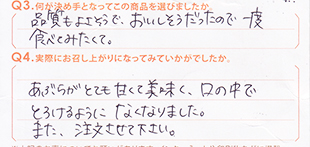 Q3.何が決め手となってこの商品を選びましたか。
品質もよさそうで、おいしそうだったので一度
食べてみたくて。
Q4.実際にお召し上がりになってみていかがでしたか。
あぶらがとても甘くて美味く、口の中で
とろけるように なくなりました。
また、注文させて下さい。